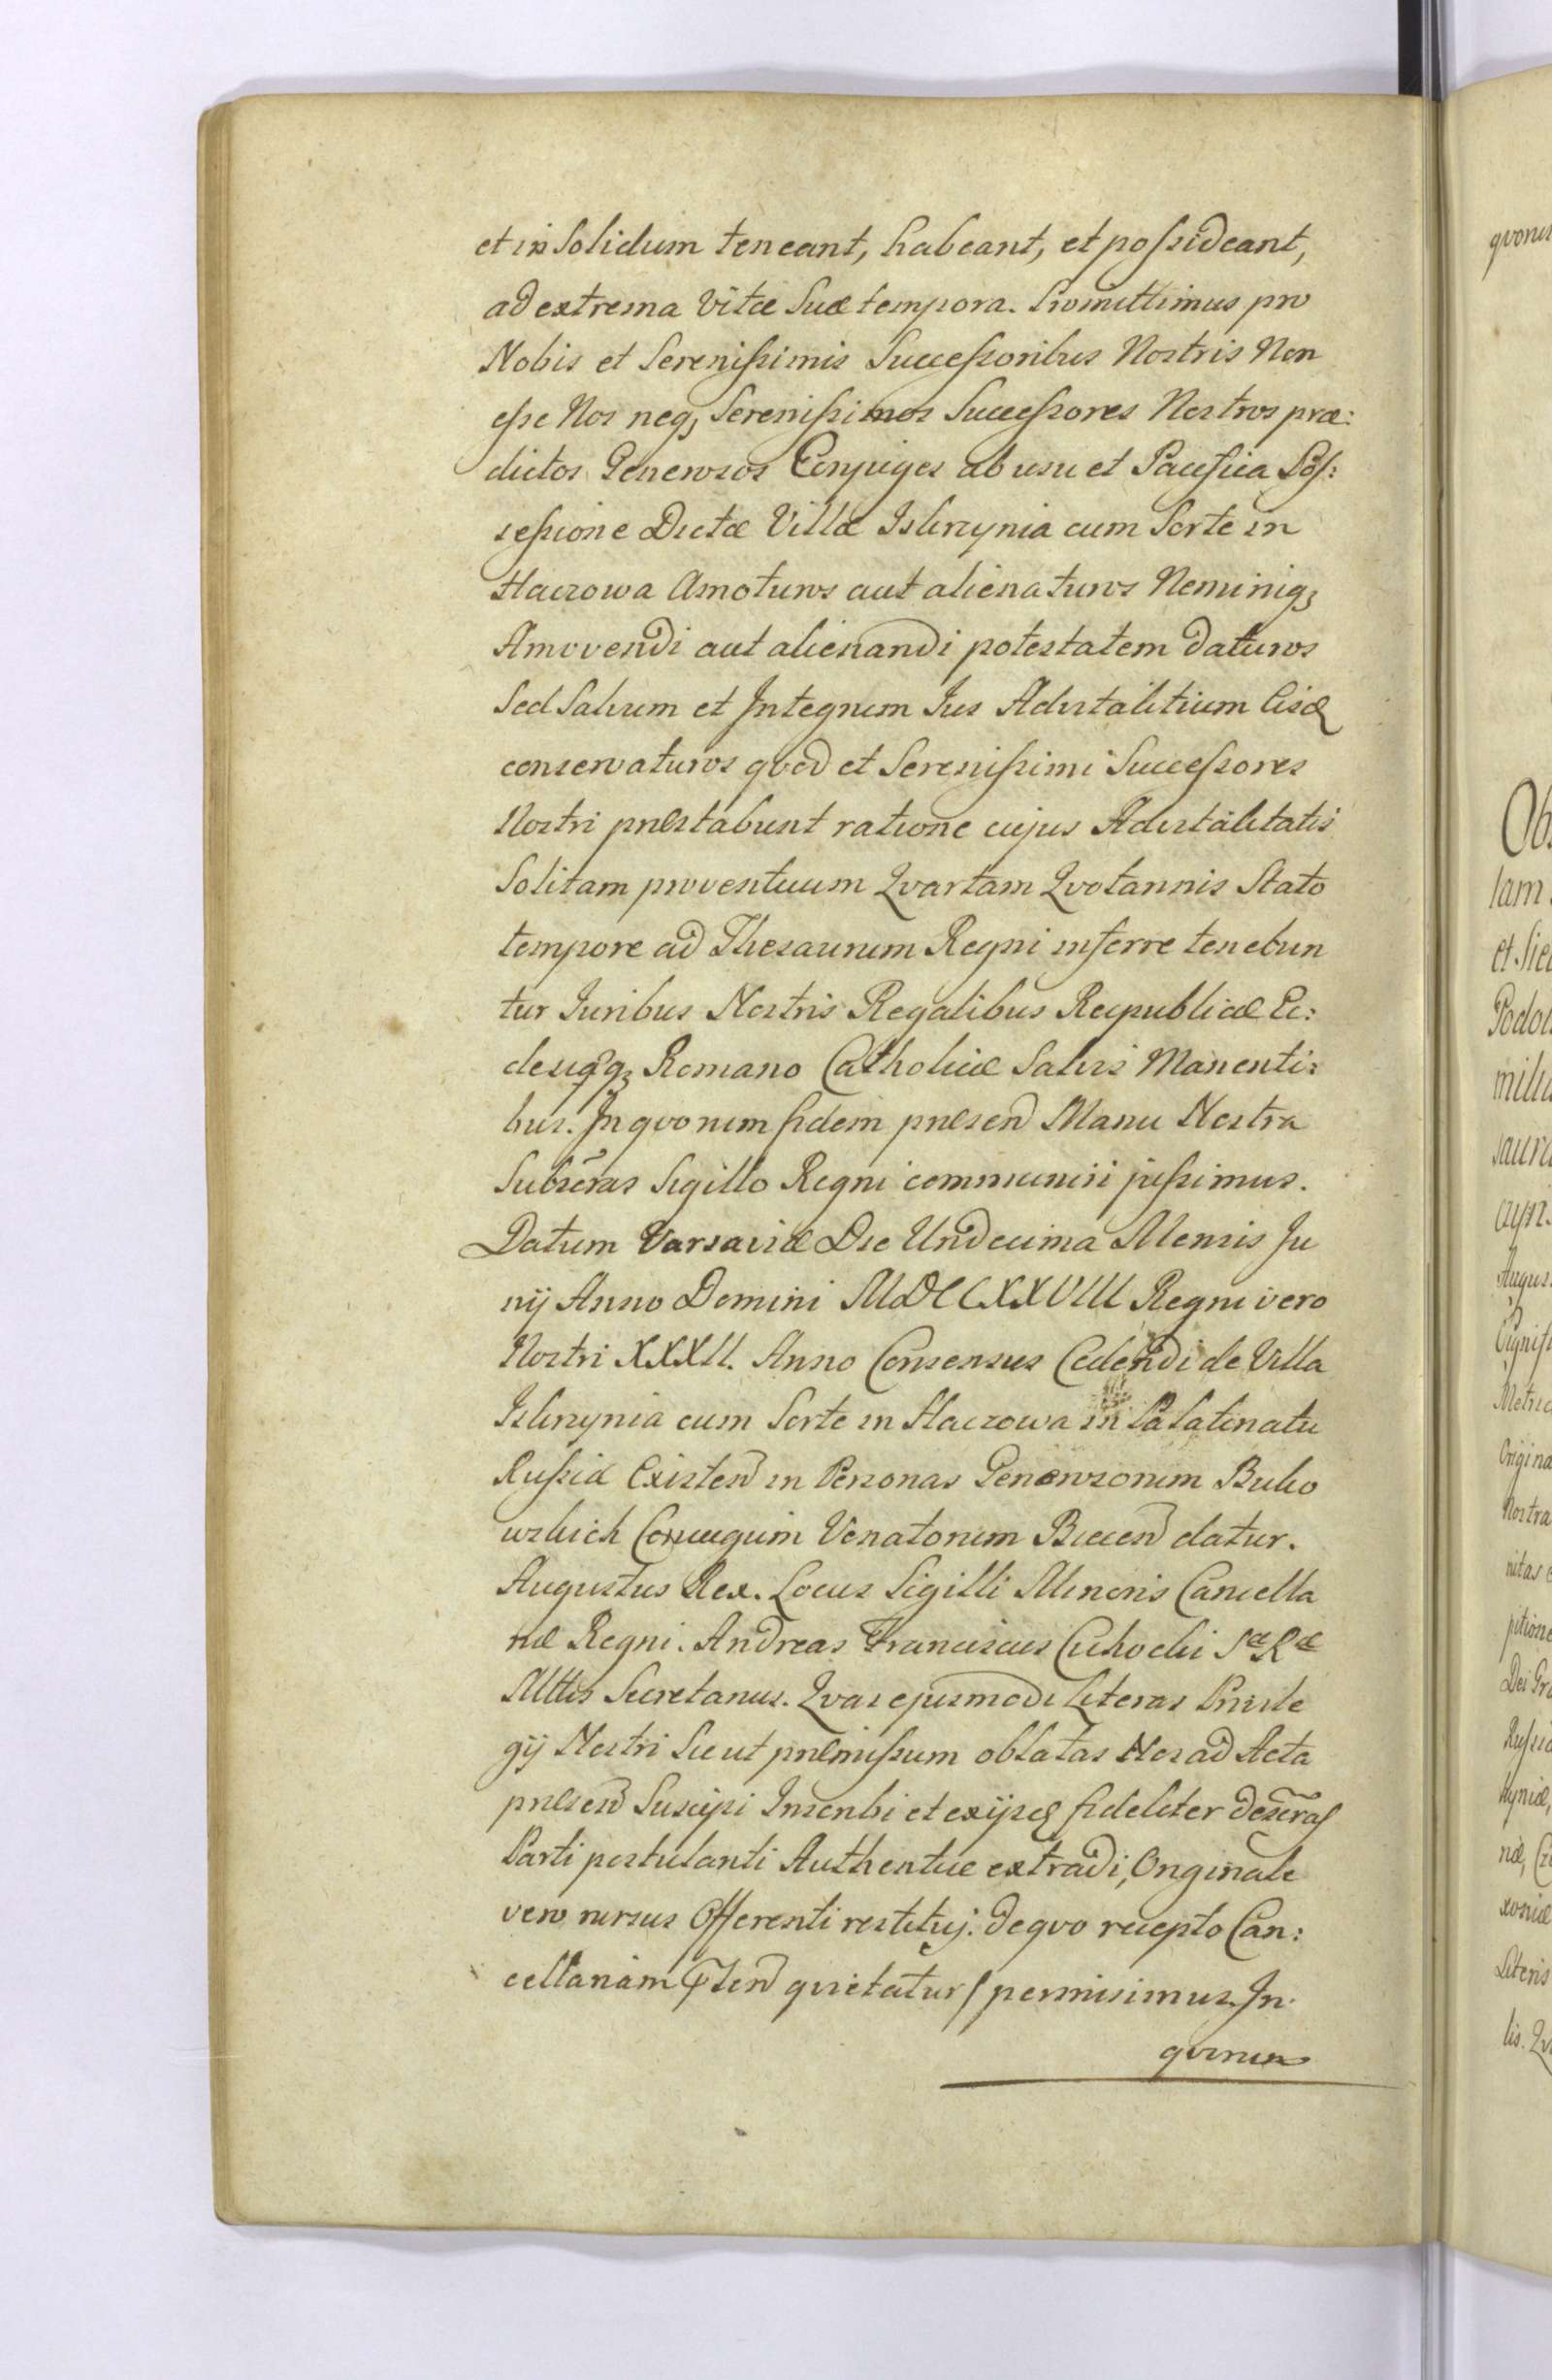 et in Solidum teneant, habeant, et possideant,
ad extrema Vitæ Suæ tempora. Promittimus pro
Nobis et Serenissimis Successoribus Nostris Non
esse Nos neq, Serenissimos Successores Nostros præ:
dictos Generosos Conjuges ab usu et Pacifica Pos:
sessione Dictæ Villæ Iskrzynia cum Sorte in
Haczowa Amoturos aut alienaturos Neminiq,
Amovendi aut alienandi potestatem daturos
Sed Salvum et Integrum Ius Advitalitium Eisd
conservaturos qvod et Serenissimi Successores
Nostri præstabunt ratione cujus Advitalitatis
Solitam proventuum Qvartam Qvotannis Stato
tempore ad Thesaurum Regni inferre tenebun
tur Iuribus Nostris Regalibus Reipublicæ Ec:
clesiæq, Romano Catholicæ Salvis Manenti:
bus. In qvorum fidem præsend Manu Nostra
Subscras Sigillo Regni communiri jussimus.
Datum Varsaviæ Die Undecima Mensis Ju
nij Anno Domini MDCCXXVIII Regni vero
Nostri XXXII. Anno Consensus Cedendi de Villa
Iskrzynia cum Sorte in Haczowa in Palatinatu
Russiæ Existend in Personas Generosorum Buko
wskich Conjugum Venatorum Biecen datur.
Augustus Rex. Locus Sigilli Minoris Cancella
riæ Regni. Andreas Franciscus Cichocki Sæ Ræ
Mttis Secretarius. Qvas ejusmodi Literas Privile
gij Nostri Sicut præmissum oblatas Nos ad Acta
præsend Suscipi Inscribi et ex ijsd fideliter descras
Parti postulanti Authentice extradi, Originale
vero rursus Offerenti restitui. de qvo recepto Can:
cellariam qvietatur / permisimus. In
qvorum
qvorum